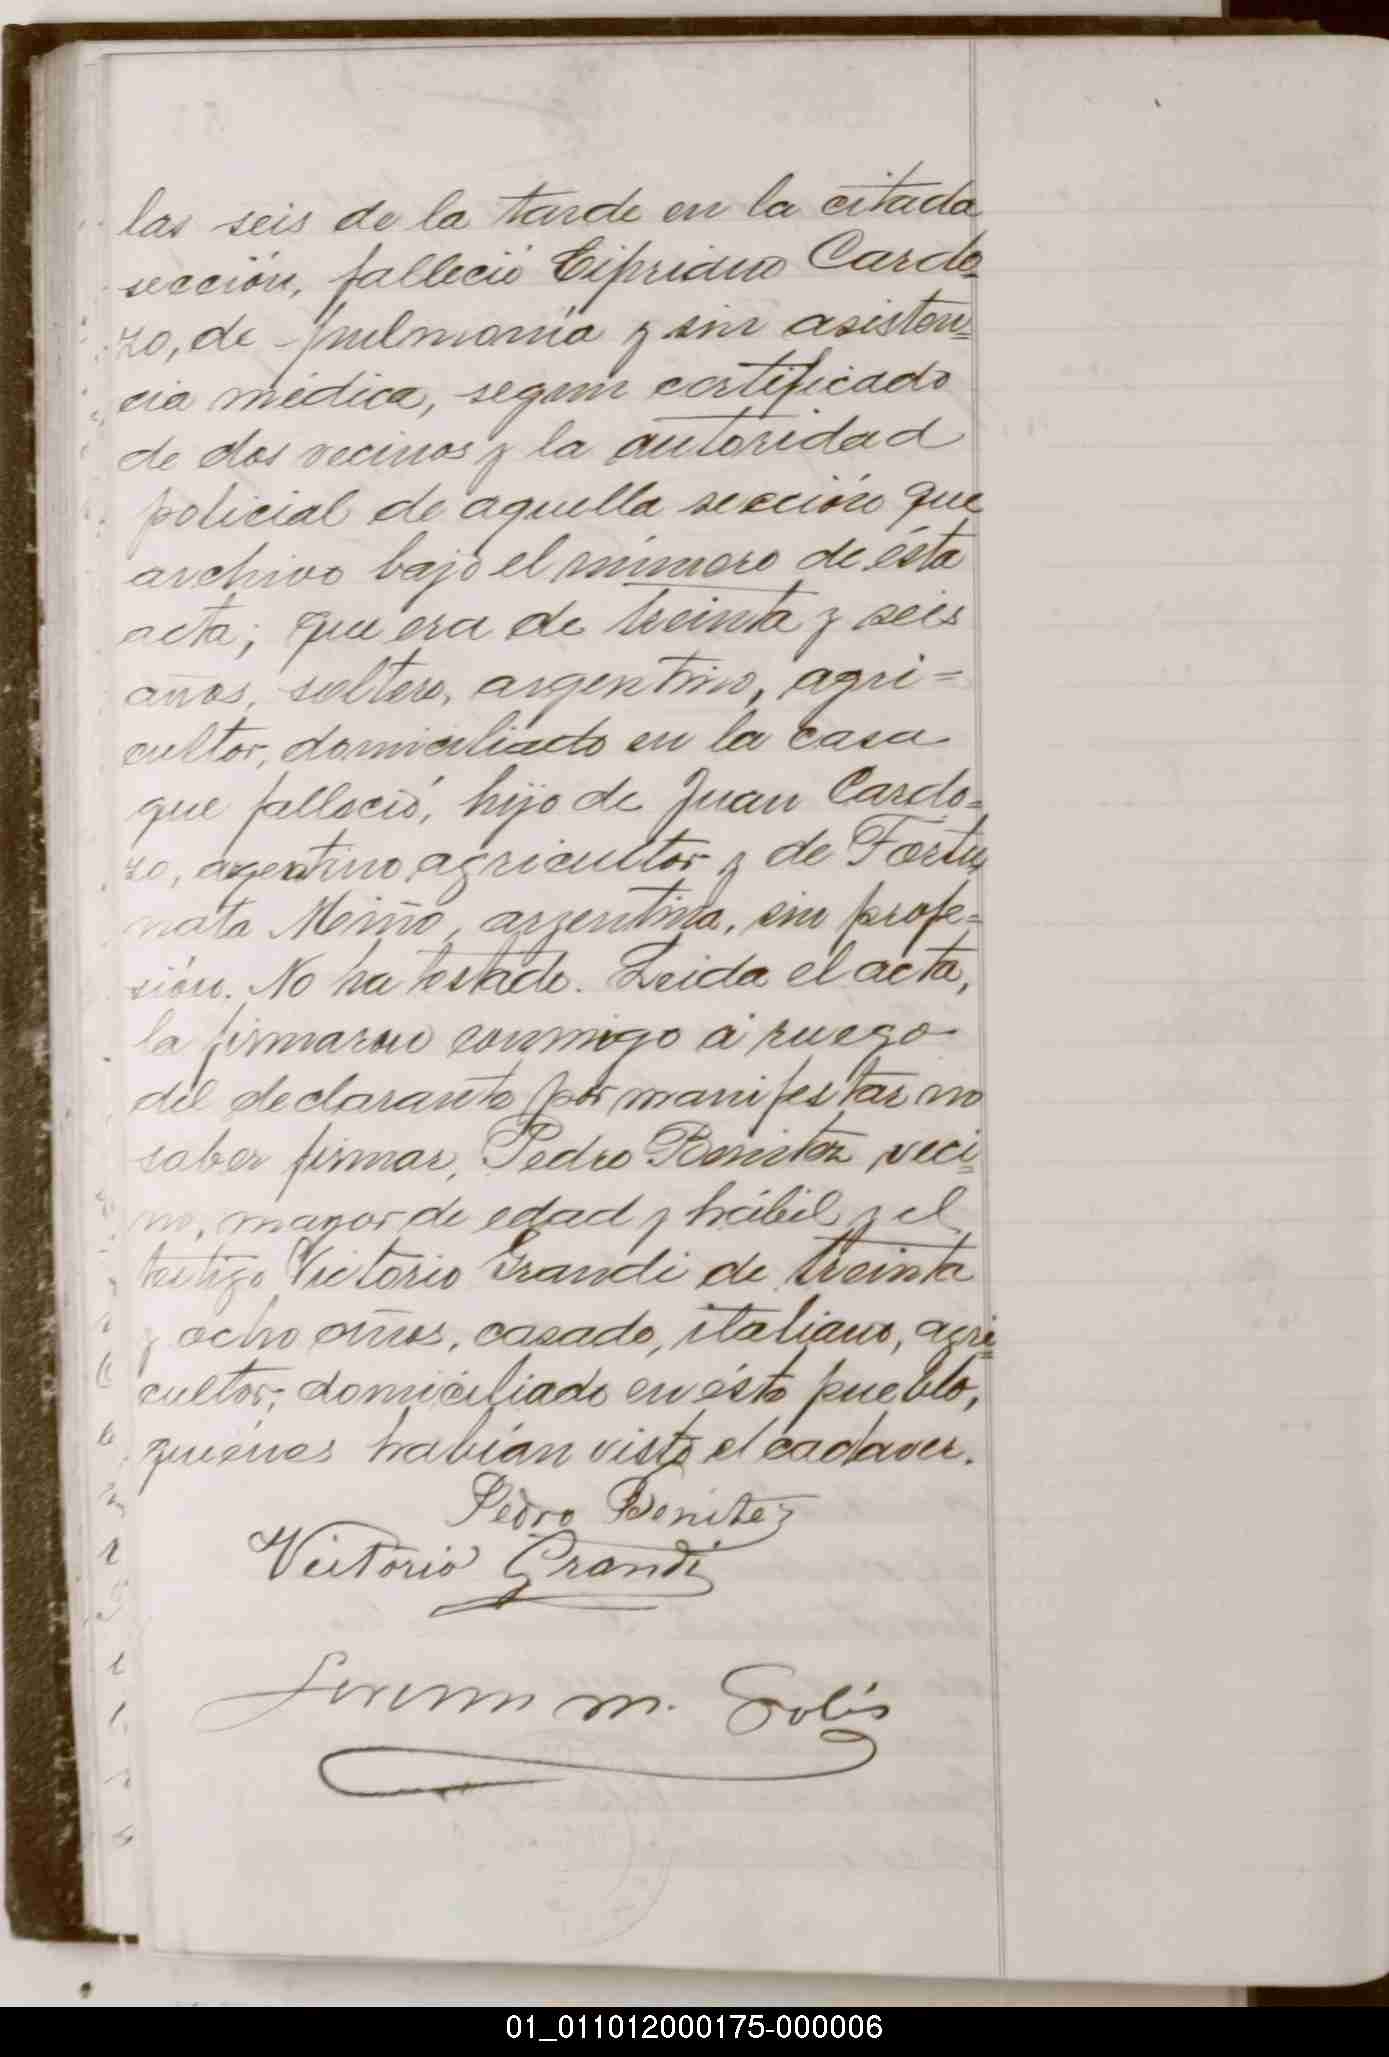 las seis de la tarde en la citada
sección, falleció Cipriano Cardo-
zo, de pulmonía y sin asisten=
cia médica, segun certificado
de dos vecinos y la autoridad
policial de aquella sección que
archivo bajo el número de ésta
acta; que era de treinta y seis
años, soltero, argentino, agri=
cultor, domiciliado en la casa
que falleció, hijo de Juan Cardo=
zo, argentino agricultor y de Fortu
nata Miño, argentina, sin profe=
sión. No ha testado. Leida el acta,
la firmaron conmigo á ruego
del declarante por manifestar no
saber firmar, Pedro Benitez veci=
no, mayor de edad y hábil y el
testigo Victorio Grandi de treinta
y ocho años, casado, italiano, agri=
cultor, domiciliado en éste pueblo,
quienes habían visto el cadaver.
Pedro Benitez
Victorio Grandi
M. Solís
01_011012000175-000006